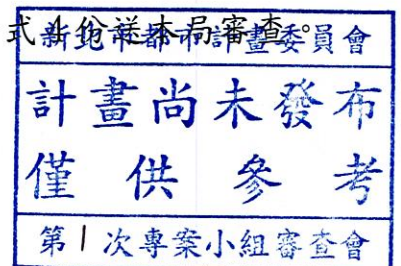 式4份送本局審查。
新北市都市計畫委員會
計畫尚未發布
僅供參考
第1次專案小組審查會